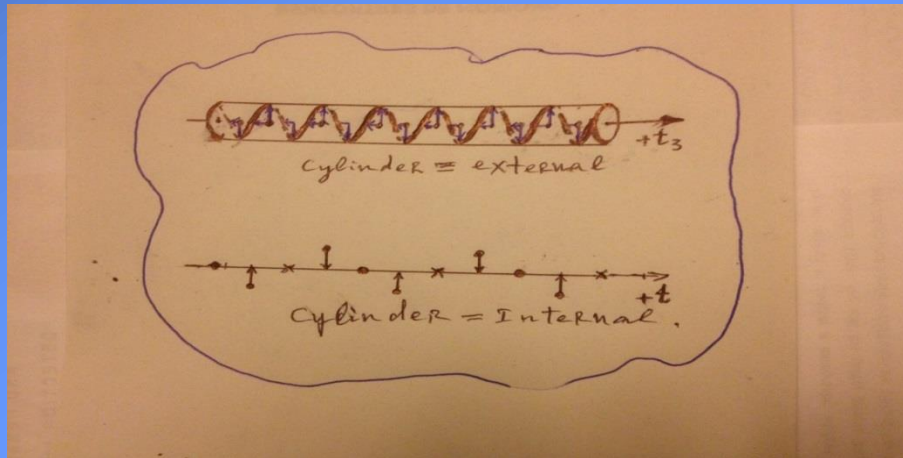 +t₃
Cylinder = external
+t
Cylinder = Internal.